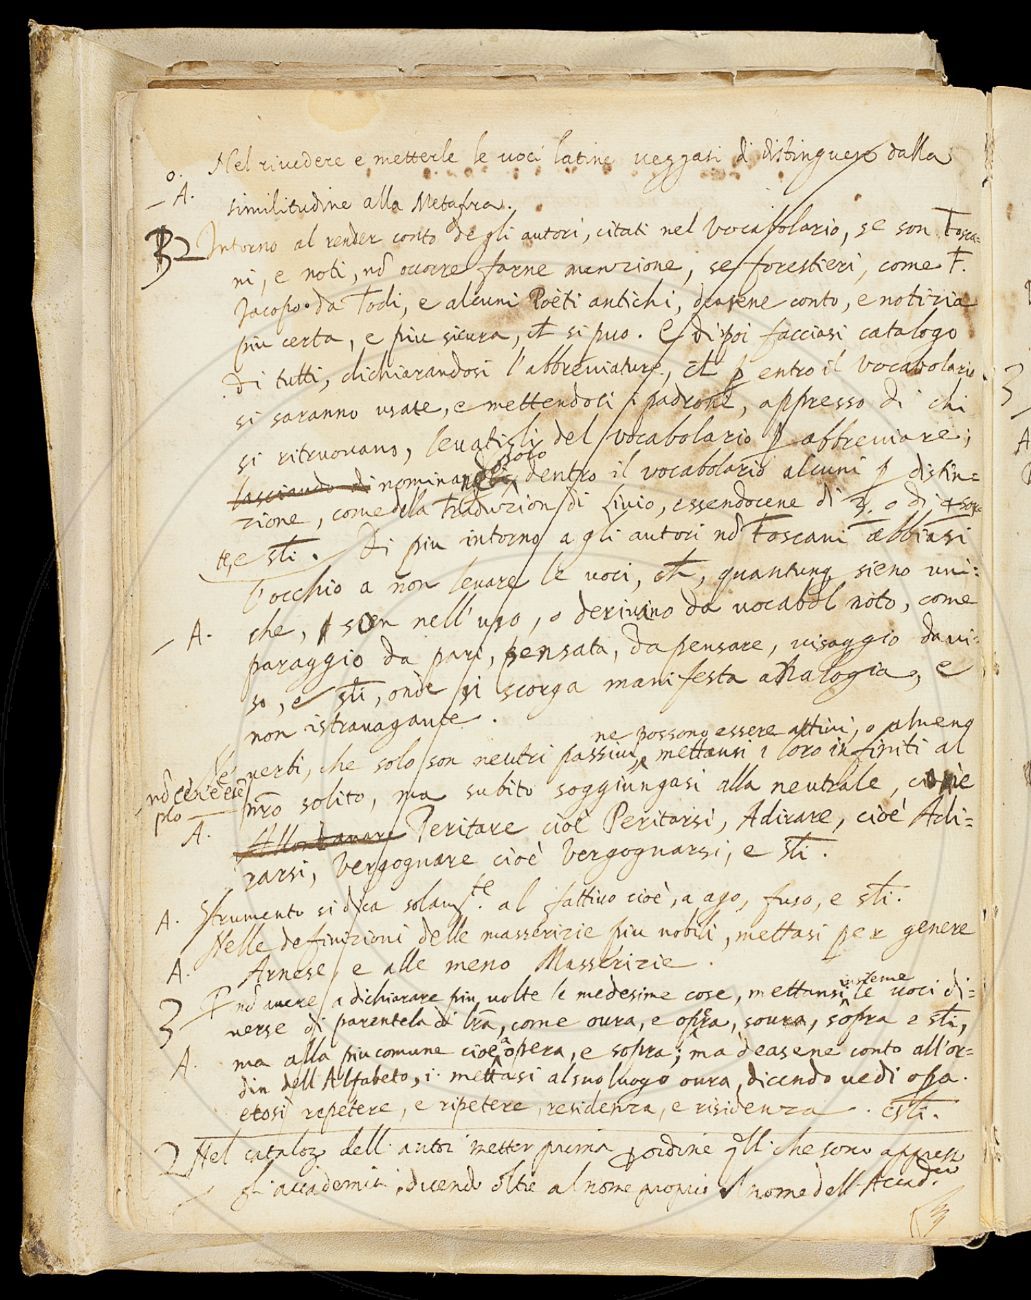 Nel rivedere e metterle le voci latine veggasi di distinguere dalla
o.
A. similitudine alla Metafora.
32 Intorno al render conto degli autori, citati nel vocabbolario, se son Tosca=
ni, e noti, nō occorre farne menzione, se forestieri, come F.
Jacopo da Todi, e alcuni Poeti antichi, deasene conto, e notizia
piu certa, e piu sicura, ch̄ si puo. E dipoi facciasi catalogo
di tutti, dichiarandosi l'abbreviature, ch̄ ꝑ entro il vocabolario
si saranno usate, e mettendoci i padroni, appresso di chi
si ritruovano, levatigli del vocabolario ꝑ abbreviare,
lasciando di nominar solo dentro il vocabolario alcuni ꝑ distin=
zione, come della Traduzion di Livio, essendocene di 2, o di
e sl̄i. Di piu intorno a gli autori nō Toscani abbiasi
l'occhio a non levare le voci, ch̄, quantunq sieno uni=
A. che, sien nell'uso, o derivino da vocabol noto, come
paraggio da pari, pensata, da pensare, visaggio da vi=
so, e sl̄i, onde si scorga manifesta analogia, e
non istravagante.
ne possono essere attivi, o almeno
verbi, che solo son neutri passivi, mettansi i loro infiniti al
nr̄o solito, ma subito soggiungasi alla neutrale, cioè
A. Allontanare Peritare cioè Peritarsi, Adirare, cioè Adi=
rarsi, vergognare cioè vergognarsi, e sl̄i.
A. Strumento si dica solamte. al fattivo cioè, a ago, fuso, e sl̄i.
Nelle definizioni delle masserizie piu nobili, mettasi per genere
A. Arnese, e alle meno Masserizie.
insieme
3 ꝑ nō avere a dichiarare piu volte le medesime cose, mettansi le voci di=
verse di parentela di lr̄a, come ovra, e opera, sovra, sopra e sl̄i,
A. ma alla piu comune cioè a opera, e sopra; ma deasene conto all'or=
din dell'Alfabeto, i. mettasi al suo luogo ovra, dicendo vedi opa.
e così repetere, e ripetere, residenza, e risidenza. e sl̄i.
2 Nel catalog dell autori metter prima ꝑ ordine qlli che sono appresso
gli accademici, dicendo oltre al nome proprio il nome dell Accad.